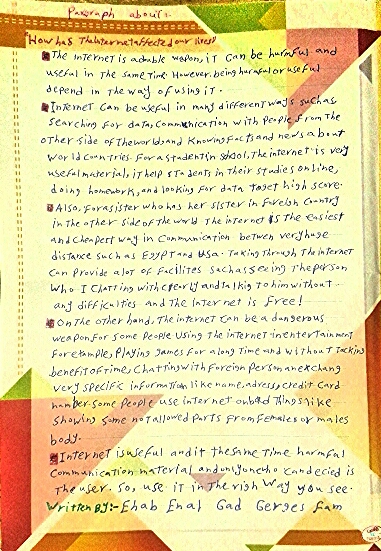 Paragraph about:-
"How has The Internet affected our lives"
The Internet is adouble weapon, it can be harmful and
useful in The same Time. However, being harmful or useful
depend in The way of using it.
Internet can be useful in many different ways such as
searching for data, Communication with People from The
other side of The world, and Knowing facts and news about
World Countries. For a student in school, The internet is very
useful material, it help students in their studies online,
doing homework, and looking for data to get high score.
Also, for a sister who has her sister in foreign country
in the other side of the world The internet is the easiest
and cheapest way in Communication betwen very huge
distance such as Egypt and Usa. Taking Through The internet
Can Provide a lot of facilites such as seeing The person
Who I Chatting with clearly and talking to him without
any difficulties and The Internet is free!
On the other hand, The internet can be a dangerous
weapon for some People Using The internet in entertainment
For example, Playing games for along Time and without Tacking
benefit of Time, Chatting with Foreign Person and exchang
very specific information like name, adress, credit Card
number. Some People use internet on bad Things like
showing some not allowed parts From Females or males
body.
Internet is useful and it the same Time harmful
Communication material and only one who can decied is
The user. So, use it in The righ Way you see.
Written By:- Ehab Enal Gad Gerges fam